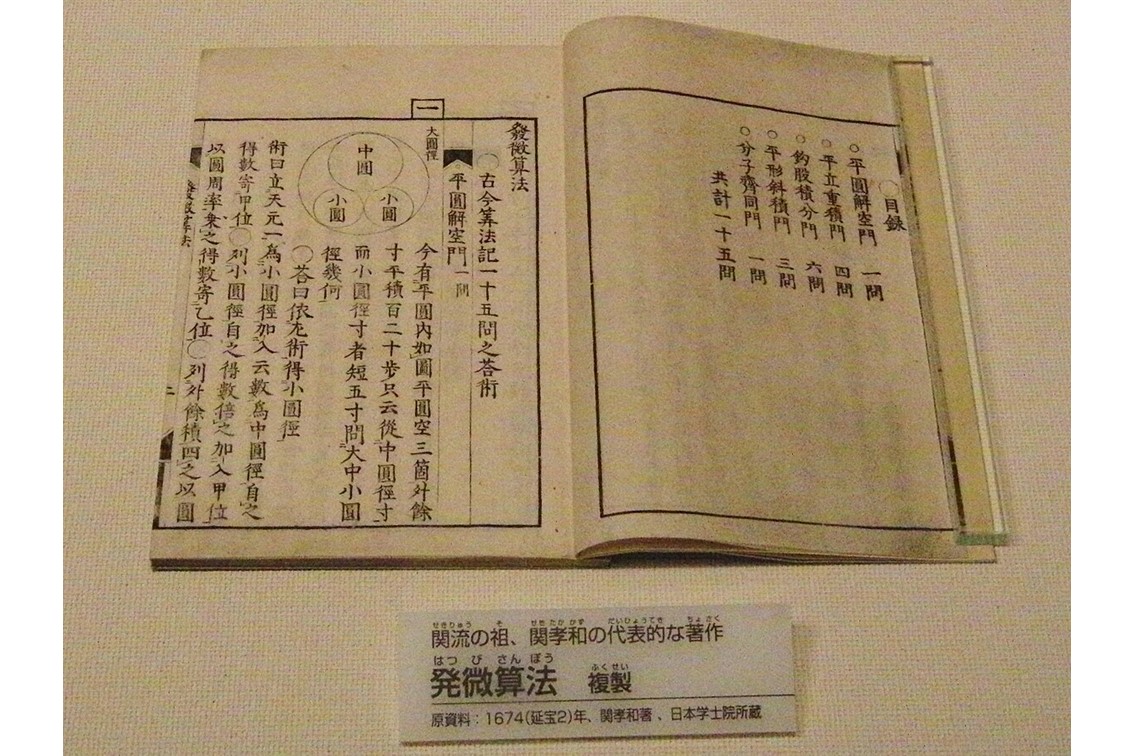 〇目録
○平圓解空門　一問
○平立重積門　四問
○鈎股積分門　六問
○平形斜積門　三問
○分子齊同門　一問
共計一十五問
發微算法
〇古今筭法記一十五問之荅術
平圓解空門一問
一
大圓徑
中圓
小圓
小圓
今有平圓内如圖平圓空三箇外餘
寸平積百二十歩只云從中圓徑寸
而小圓徑寸者短五寸問大中小圓
徑幾何
〇荅曰依左術得小圓徑
術曰立天元一爲小圓徑加入云數爲中圓徑自之
得數寄甲位〇列小圓徑自之得數倍之加入甲位
以圓周率乗之得數寄乙位〇列外餘積四之以圓
發微算法
二
せきりゅう そ せきたかかず だいひょうてき ちょさく
関流の祖、関孝和の代表的な著作
はつびさんぽう ふくせい
発微算法　複製
原資料：1674(延宝2)年、関孝和著、日本学士院所蔵